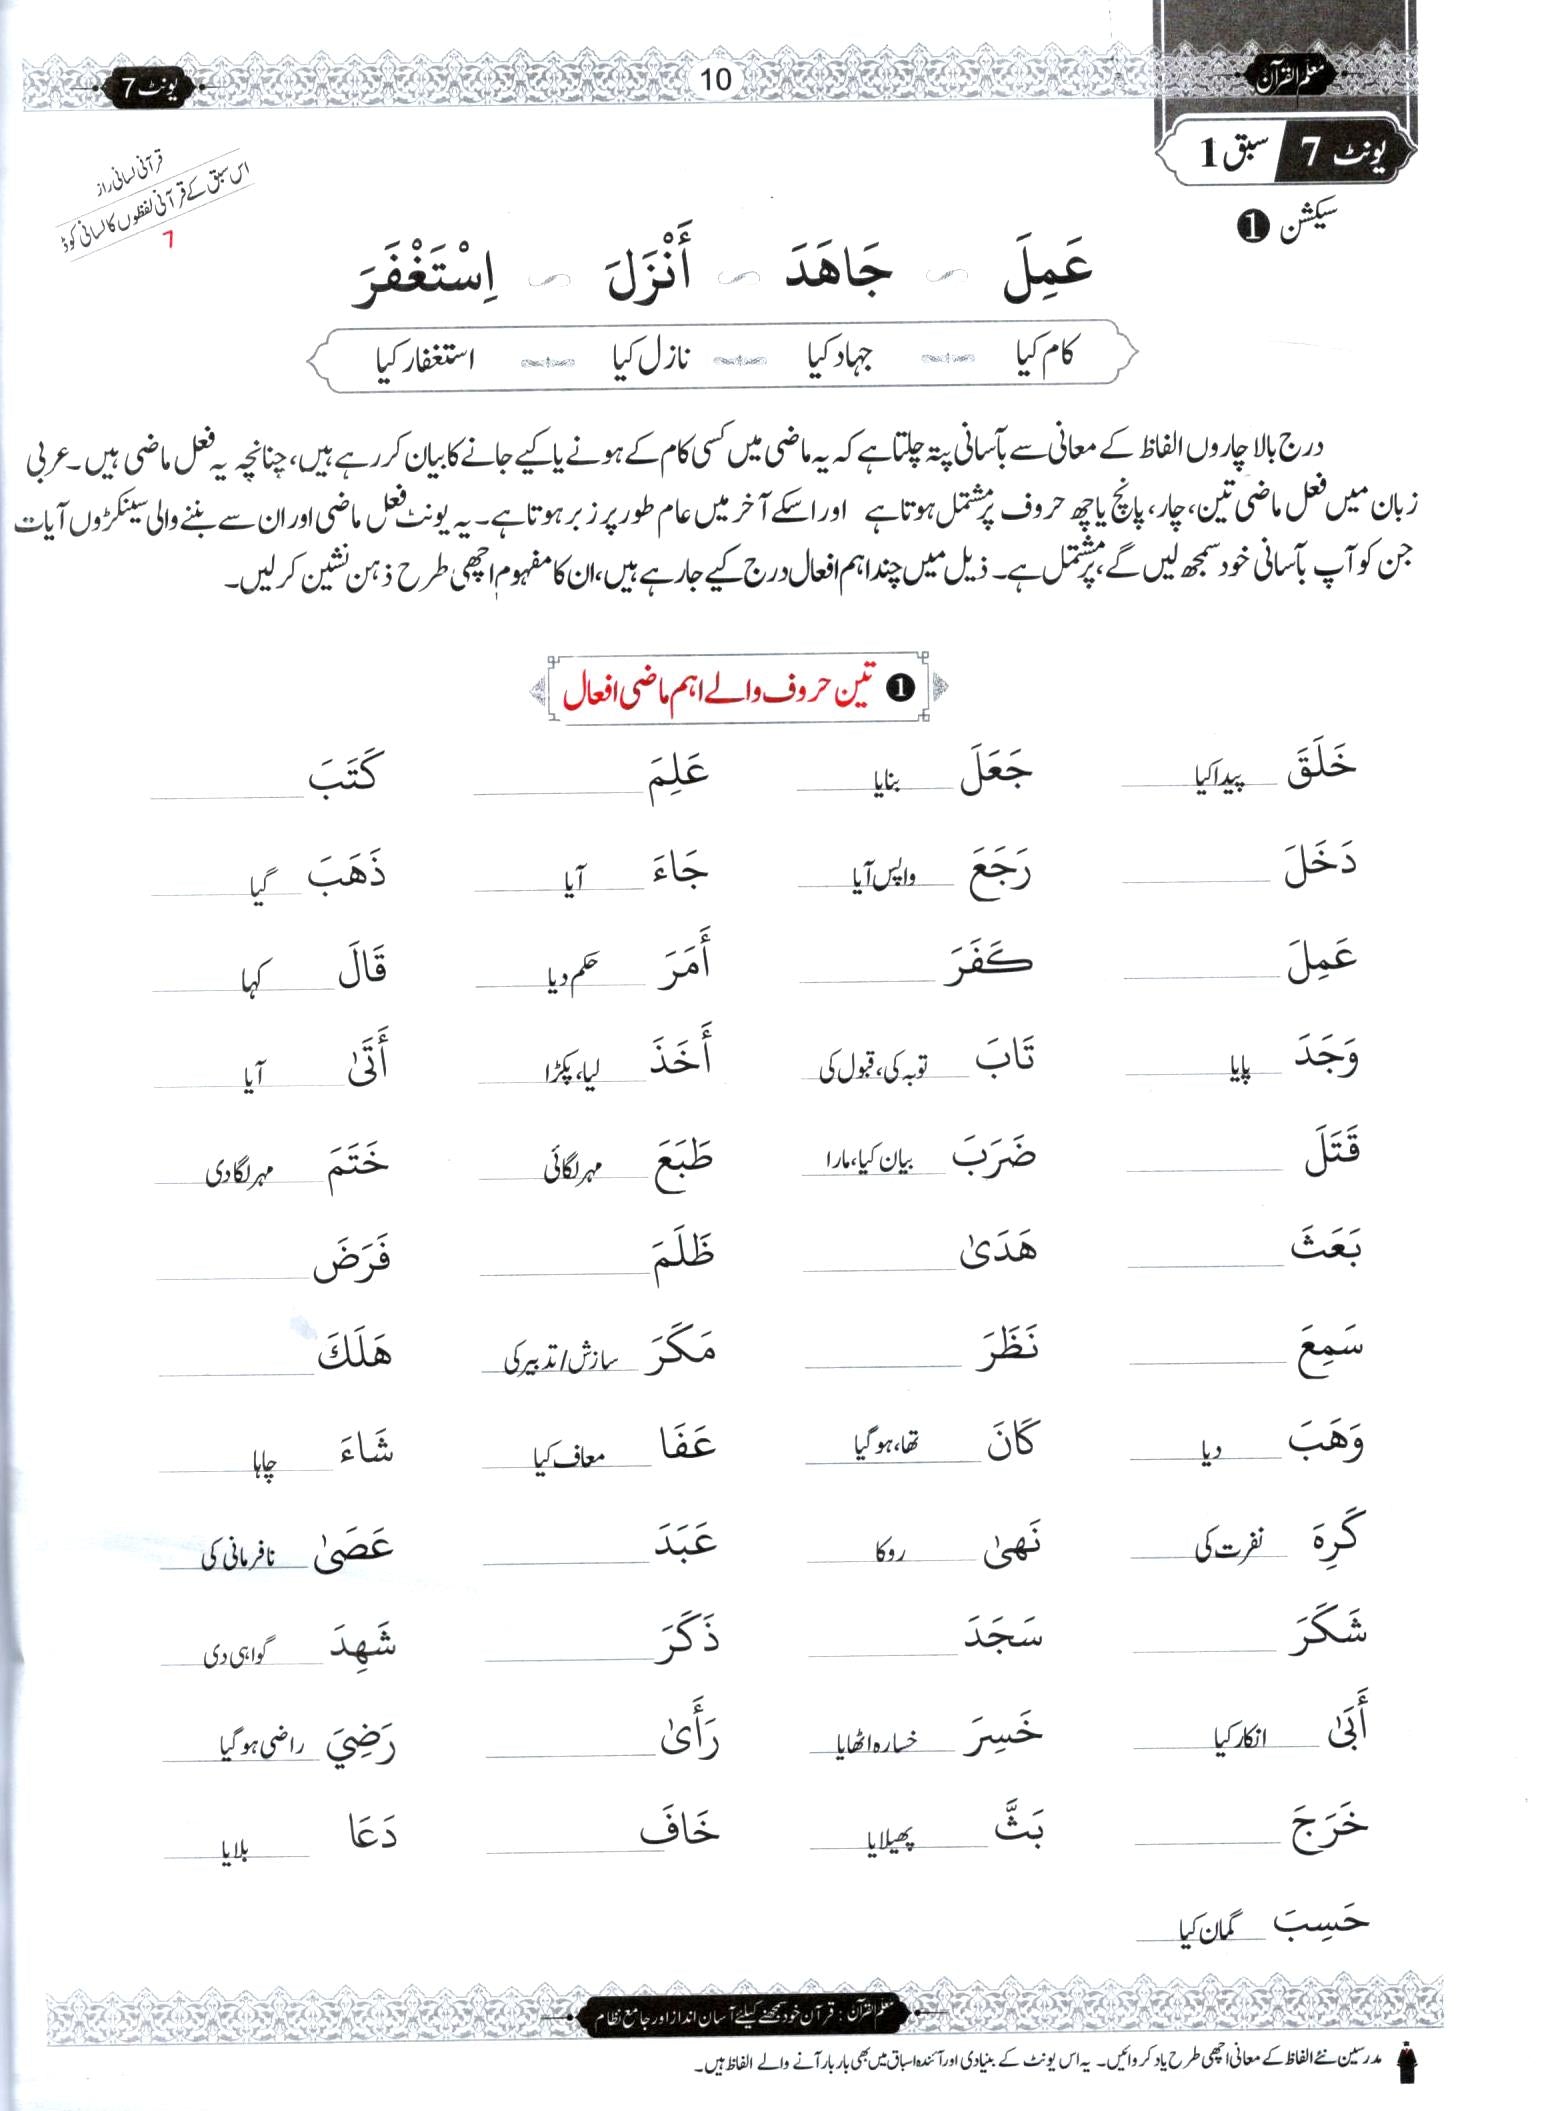 معلم القرآن
10
یونٹ 7
یونٹ 7 سبق 1
قرآنی لسانی راز
اس سبق کے قرآنی لفظوں کا لسانی کوڈ
7
سیکشن 1
عَمِلَ جَاهَدَ أَنْزَلَ اِسْتَغْفَرَ
کام کیا جہاد کیا نازل کیا استغفار کیا
درج بالا چاروں الفاظ کے معانی سے بآسانی پتہ چلتا ہے کہ یہ ماضی میں کسی کام کے ہونے یا کیے جانے کا بیان کر رہے ہیں، چنانچہ یہ فعل ماضی ہیں۔ عربی
زبان میں فعل ماضی تین، چار، پانچ یا چھ حروف پر مشتمل ہوتا ہے اور اسکے آخر میں عام طور پر زبر ہوتا ہے۔ یہ یونٹ فعل ماضی اور ان سے بننے والی سینکڑوں آیات
جن کو آپ بآسانی خود سمجھ لیں گے، پر مشتمل ہے۔ ذیل میں چند اہم افعال درج کیے جا رہے ہیں، ان کا مفہوم اچھی طرح ذہن نشین کر لیں۔
1 تین حروف والے اہم ماضی افعال
خَلَقَ پیدا کیا جَعَلَ بنایا عَلِمَ كَتَبَ
دَخَلَ رَجَعَ واپس آیا جَاءَ آیا ذَهَبَ گیا
عَمِلَ كَفَرَ أَمَرَ حکم دیا قَالَ کہا
وَجَدَ پایا تَابَ توبہ کی، قبول کی أَخَذَ لیا، پکڑا أَتَىٰ آیا
قَتَلَ ضَرَبَ بیان کیا، مارا طَبَعَ مہر لگائی خَتَمَ مہر لگا دی
بَعَثَ هَدَىٰ ظَلَمَ فَرَضَ
سَمِعَ نَظَرَ مَكَرَ سازش/تدبیر کی هَلَكَ
وَهَبَ دیا كَانَ تھا، ہو گیا عَفَا معاف کیا شَاءَ چاہا
كَرِهَ نفرت کی نَهىٰ روکا عَبَدَ عَصَىٰ نافرمانی کی
شَكَرَ سَجَدَ ذَكَرَ شَهِدَ گواہی دی
أَبَىٰ انکار کیا خَسِرَ خسارہ اٹھایا رَأَىٰ رَضِيَ راضی ہو گیا
خَرَجَ بَثَّ پھیلایا خَافَ دَعَا بلایا
حَسِبَ گمان کیا
معلم القرآن : قرآن خود سمجھنے کیلئے آسان انداز اور جامع نظام
مدرسین نئے الفاظ کے معانی اچھی طرح یاد کروائیں۔ یہ اس یونٹ کے بنیادی اور آئندہ اسباق میں بھی بار بار آنے والے الفاظ ہیں۔